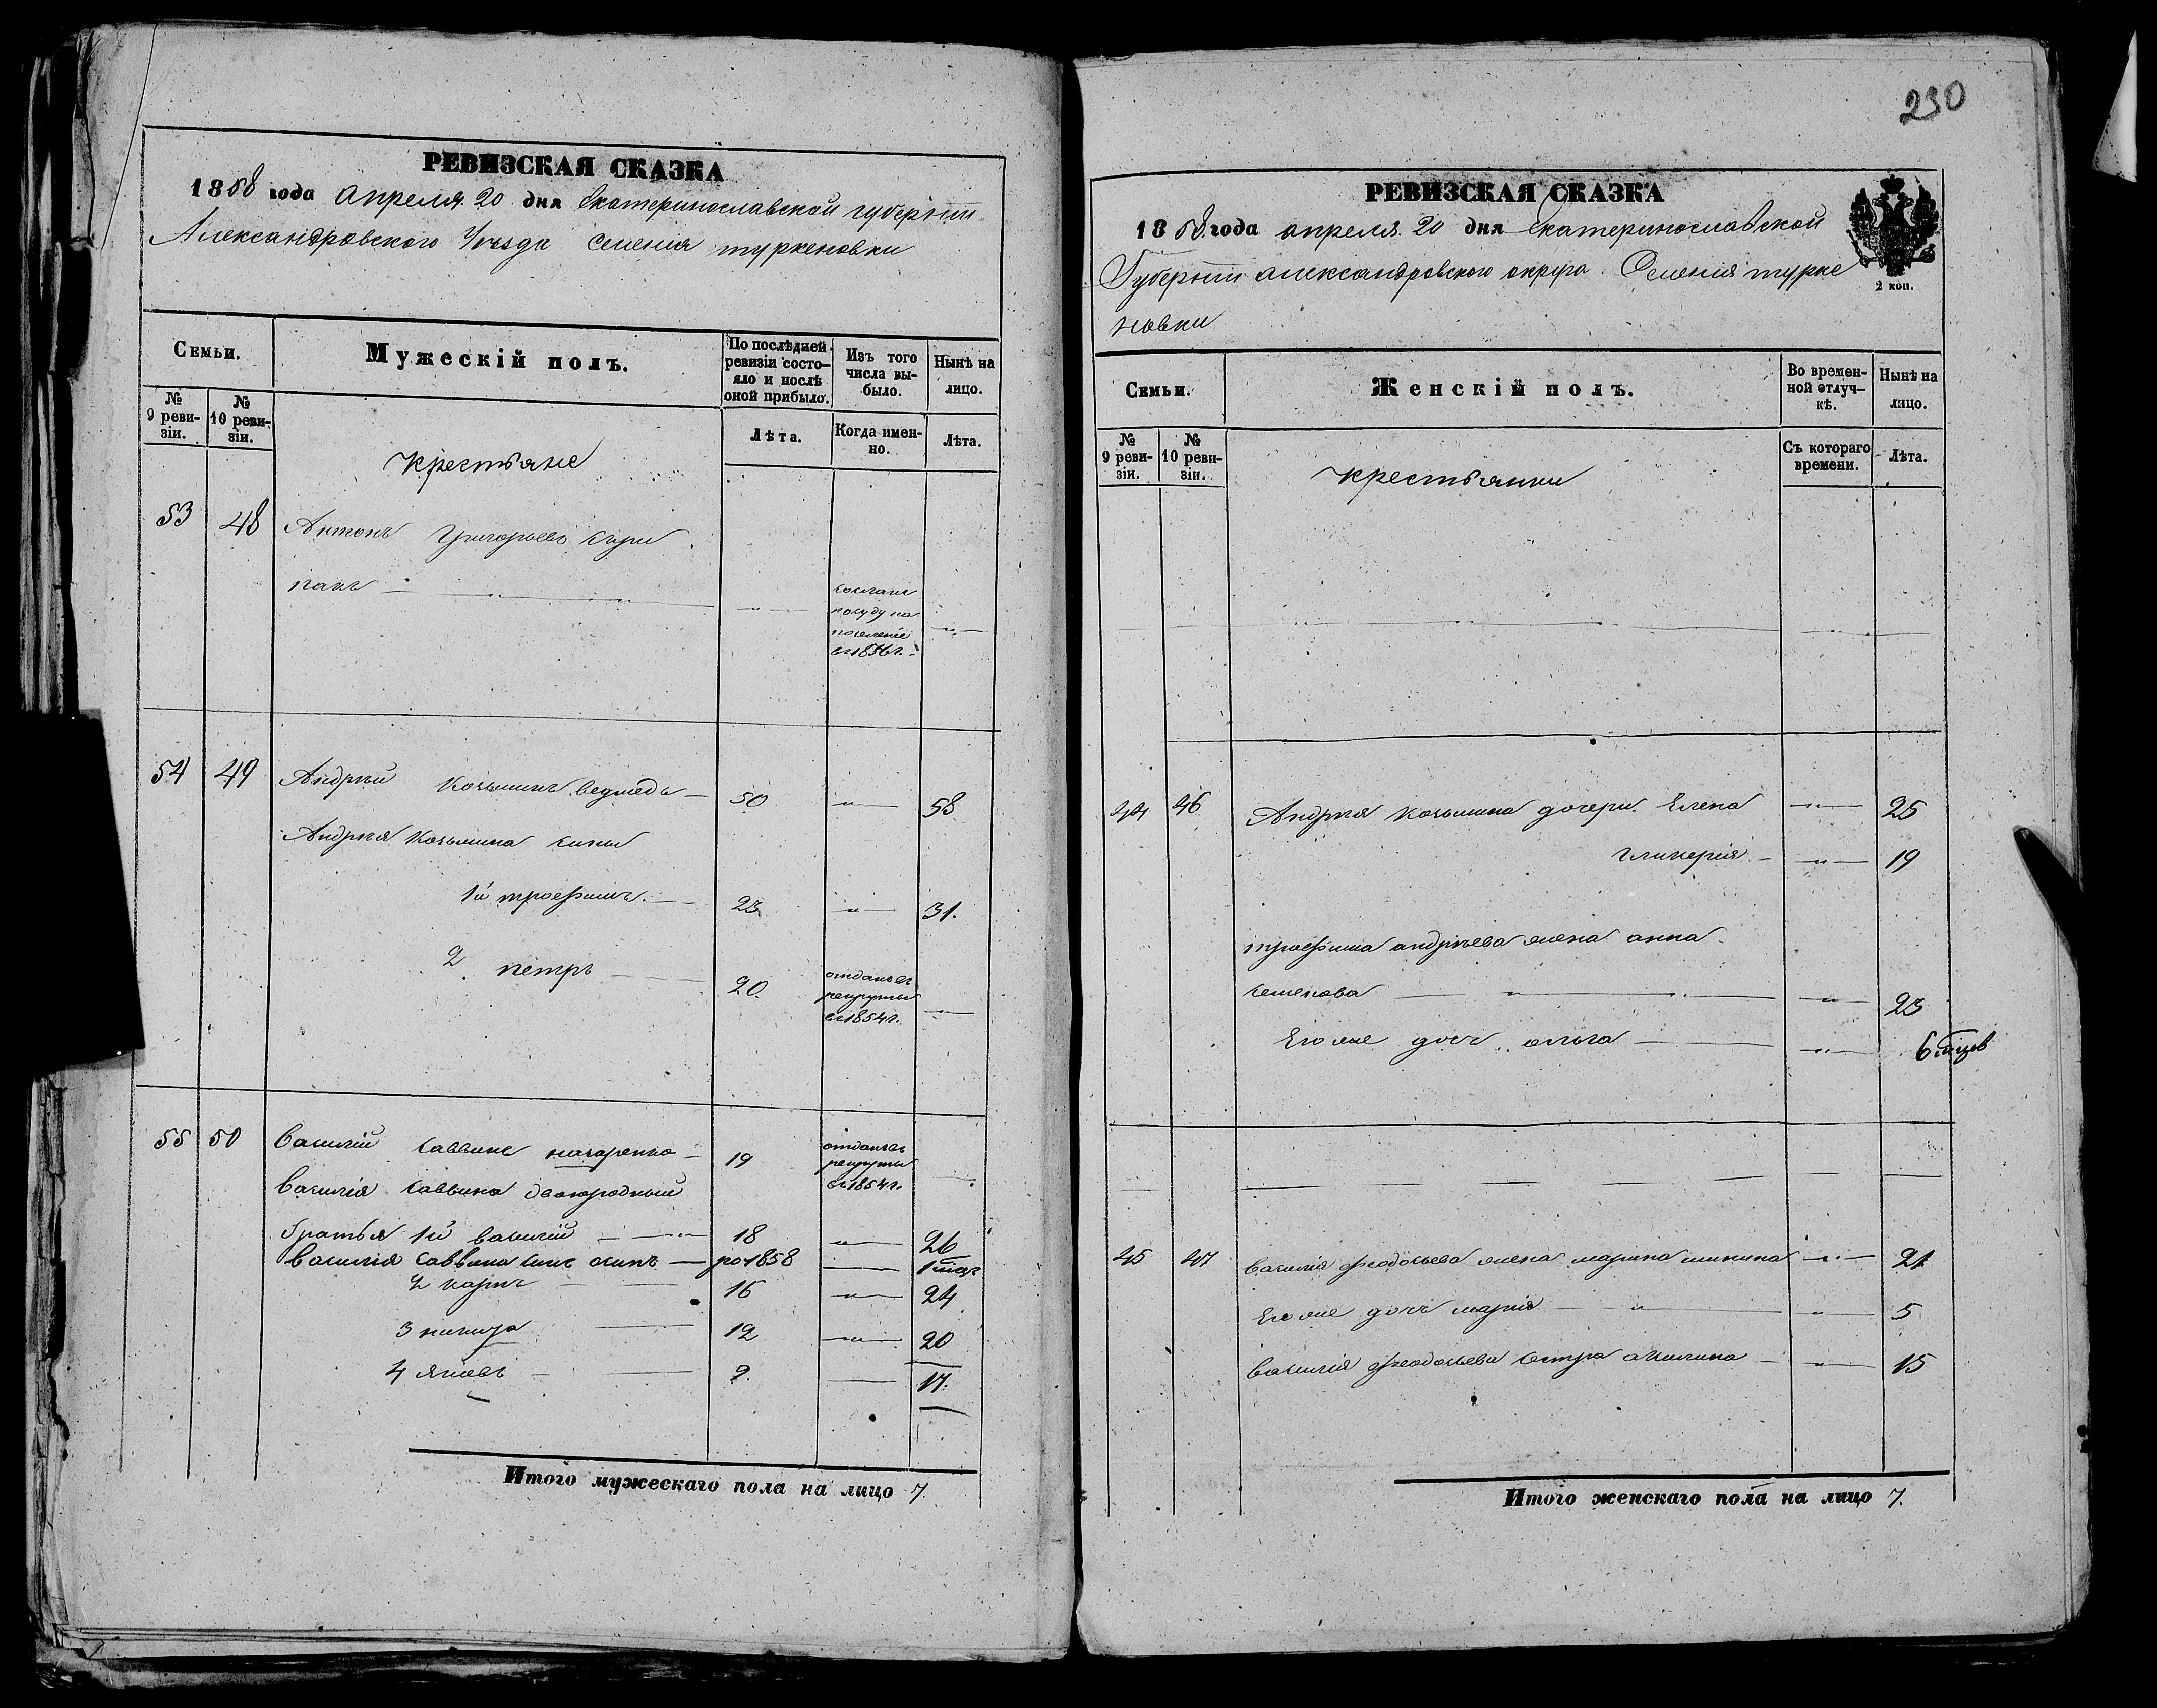 230
РЕВИЗСКАЯ СКАЗКА
1858 года апреля 20 дня Екатеринославской губерніи
Александровского Уезда Селенія туркеновки
Семьи.
Мужескій полъ.
По послѣдней ревизіи состояло и послѣ оной прибыло.
Изъ того числа выбыло.
Нынѣ на лицо.
№ 9 ревизіи.
№ 10 ревизіи.
Лѣта.
Когда именно.
Лѣта.
Крестьяне
53 48 Антонъ Григорьевъ
сосланъ
посуду на
поселеніе
въ 1856 г.
54 49 Андрей Козьминъ Ведмедь — 50 — " — 58
Андрея Козьмина сины
1й трофимъ. — 23 — " — 31.
2 петръ — 20. отданъ въ рекруты въ 1854 г. —
55 50 Василій Саввинъ назаренко — 19 отданъ въ рекруты въ 1854 г. —
Василія Саввина двоюродный
братья 1й василій — " 18 — " — 26
Василія Саввина сынъ осипъ — ро 1858 — 1 мца
2 карпъ — 16 — " — 24
3 никита — 12 — " — 20
4 яковъ — 9. — 17.
Итого мужескаго пола на лицо 7.
РЕВИЗСКАЯ СКАЗКА
1858 года апреля 20 дня Екатеринославской
Губерніи александровского округа. Селенія турке
новки
2 коп.
Семьи.
Женскій полъ.
Во временной отлучкѣ.
Нынѣ на лицо.
№ 9 ревизіи.
№ 10 ревизіи.
Съ котораго времени.
Лѣта.
крестьянки
44 46 Андрея Козьмина дочери Елена — " — 25
гликерія — — " — 19
трофима андреева жена анна
семенова — " — — " — 23
Его же дочь ольга — — " — 6 мцов
45 47 Василія феодосьева жена марина — " — 21
Его же дочь марія — " — — " — 5
Василія феодосьева сестра акилина — — " — 15
Итого женскаго пола на лицо 7.